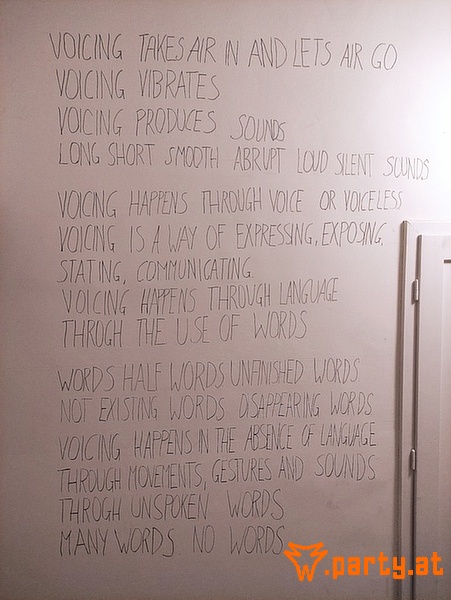 VOICING TAKES AIR IN AND LETS AIR GO
VOICING VIBRATES
VOICING PRODUCES SOUNDS
LONG SHORT SMOOTH ABRUPT LOUD SILENT SOUNDS
VOICING HAPPENS THROUGH VOICE OR VOICELESS
VOICING IS A WAY OF EXPRESSING, EXPOSING,
STATING, COMMUNICATING.
VOICING HAPPENS THROUGH LANGUAGE
THROGH THE USE OF WORDS
WORDS HALF WORDS UNFINISHED WORDS
NOT EXISTING WORDS DISAPPEARING WORDS
VOICING HAPPENS IN THE ABSENCE OF LANGUAGE
THROUGH MOVEMENTS, GESTURES AND SOUNDS
THROGH UNSPOKEN WORDS
MANY WORDS NO WORDS
w.party.at